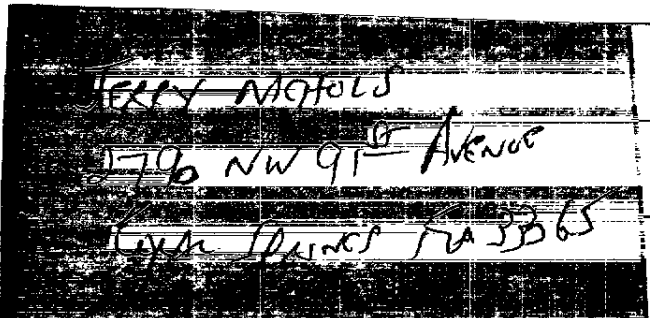 JERRY NICHOLS
2790 NW 91ST AVENUE
CORAL SPRINGS FLA 33065